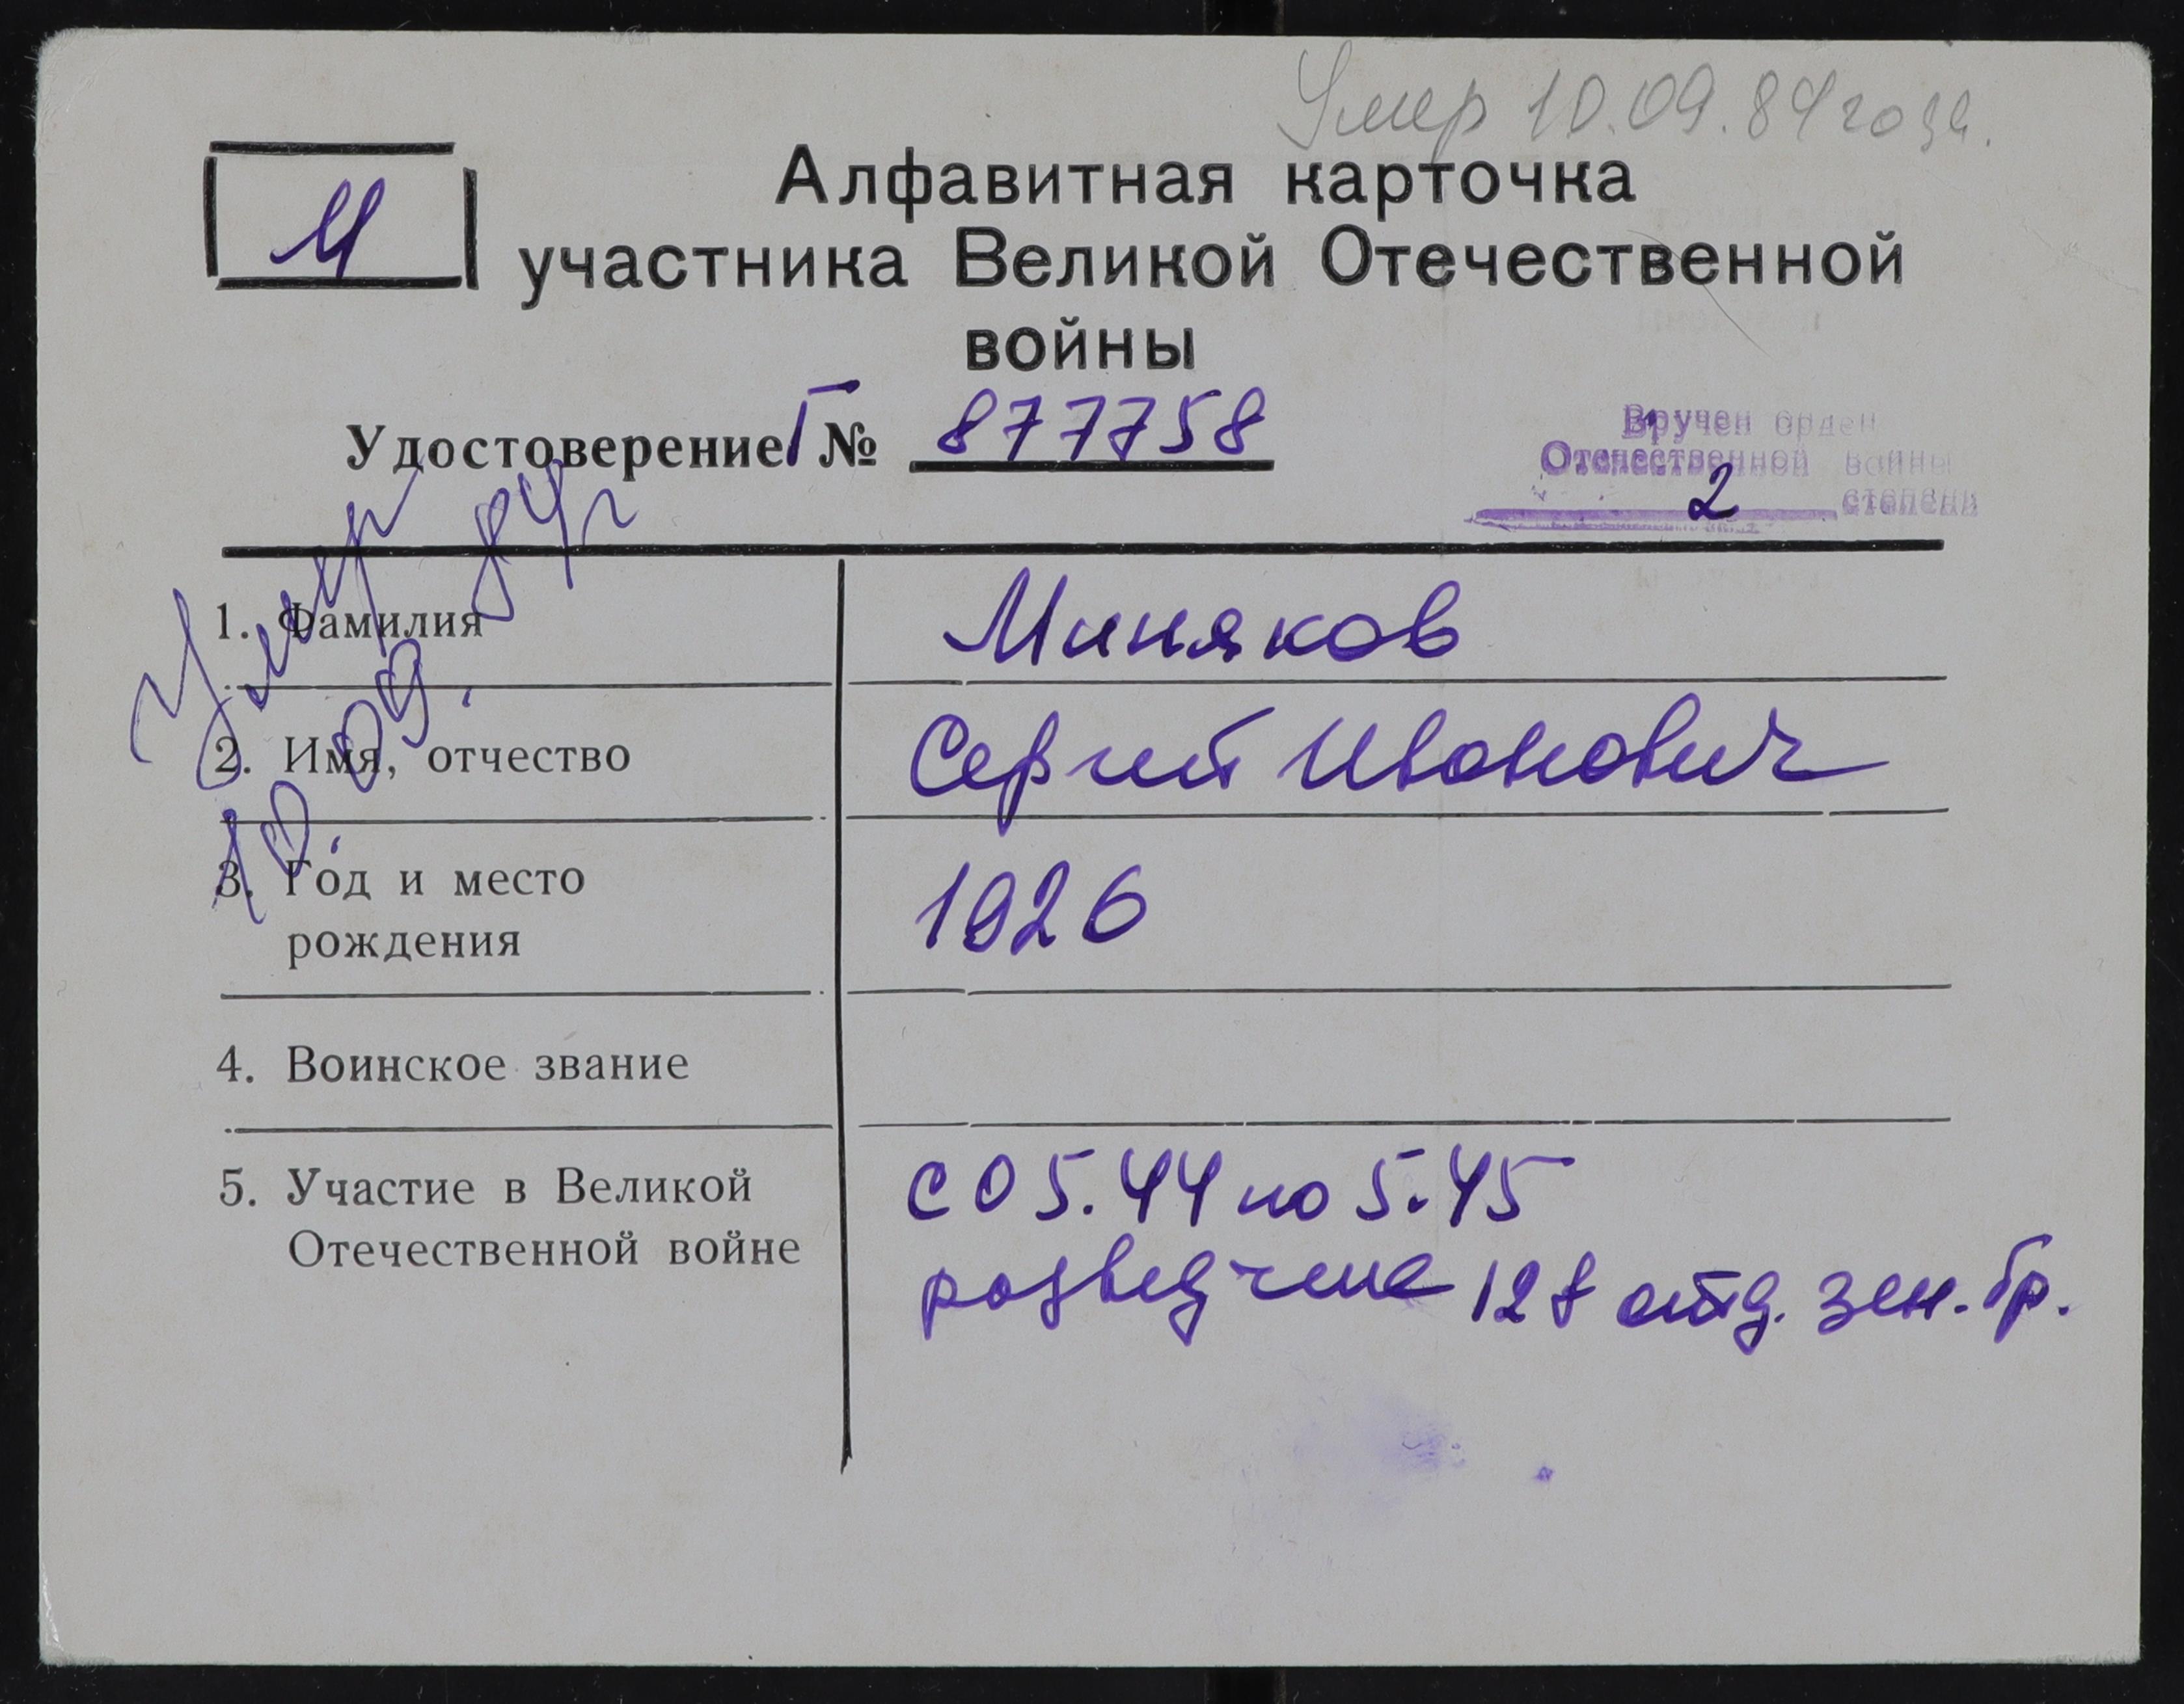 Умер 10.09.84 года.
М
Алфавитная карточка
участника Великой Отечественной
войны
Удостоверение Г № 877758
Вручен орден
Отечественной войны
2 степени
Умер 84г
10.09.
1. Фамилия Миняков
2. Имя, отчество Сергий Иванович
3. Год и место
рождения 1926
4. Воинское звание
5. Участие в Великой
Отечественной войне
с 05.44 по 5.45
разведчик 128 отд. зен. бр.